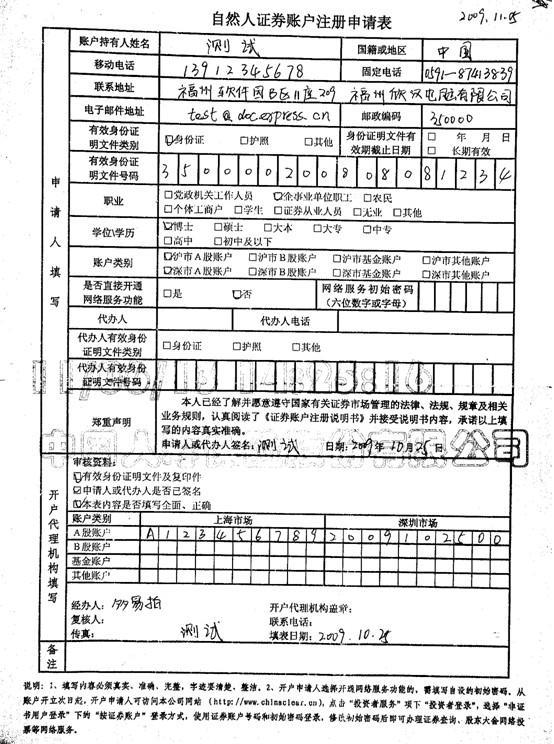 自然人证券账户注册申请表 2009.11.25
账户持有人姓名 测试 国籍或地区 中国
移动电话 13912345678 固定电话 0591-87413839
联系地址 福州软件园B区11座209 福州 电 有限公司
电子邮件地址 test@docexpress.cn 邮政编码 350000
有效身份证明文件类别 ☑身份证 □护照 □其他 身份证明文件有效期截止日期 □ 年 月 日 □ 长期有效
有效身份证明文件号码 350000200808081234
申请人填写
职业 □党政机关工作人员 ☑企事业单位职工 □农民
□个体工商户 □学生 □证券从业人员 □无业 □其他
学位\学历 ☑博士 □硕士 □大本 □大专 □中专
□高中 □初中及以下
账户类别 ☑沪市A股账户 □沪市B股账户 □沪市基金账户 □沪市其他账户
☑深市A股账户 □深市B股账户 □深市基金账户 □深市其他账户
是否直接开通网络服务功能 □是 ☑否 网络服务初始密码(六位数字或字母)
代办人 代办人电话
代办人有效身份证明文件类别 □身份证 □护照 □其他
代办人有效身份证明文件号码
郑重声明
本人已经了解并愿意遵守国家有关证券市场管理的法律、法规、规章及相关
业务规则,认真阅读了《证券账户注册说明书》并接受说明书内容,承诺以上填
写的内容真实准确。
申请人或代办人签名: 测试 日期: 2009年10月25日
开户代理机构填写
审核资料:
☑有效身份证明文件及复印件
☑申请人或代办人是否已签名
☑本表内容是否填写全面、正确
账户类别 上海市场 深圳市场
A股账户 A123456789 2009102500
B股账户
基金账户
其他账户
经办人: 易拍 开户代理机构盖章:
复核人: 联系电话:
传真: 测试 填表日期: 2009.10.25
备注
说明:1、填写内容必须真实、准确、完整,字迹要清楚、整洁。2、开户申请人选择开通网络服务功能的,需填写自设的初始密码。从
账户开立次日起,开户申请人可访问本公司网站(http://www.chinaclear.cn),点击“投资者服务”项下“投资者登录”,选择“非证
书用户登录”下的“按证券账户”登录方式,使用证券账户号码和初始密码登录,修改初始密码后即可办理证券查询、股东大会网络投
票等网络服务。